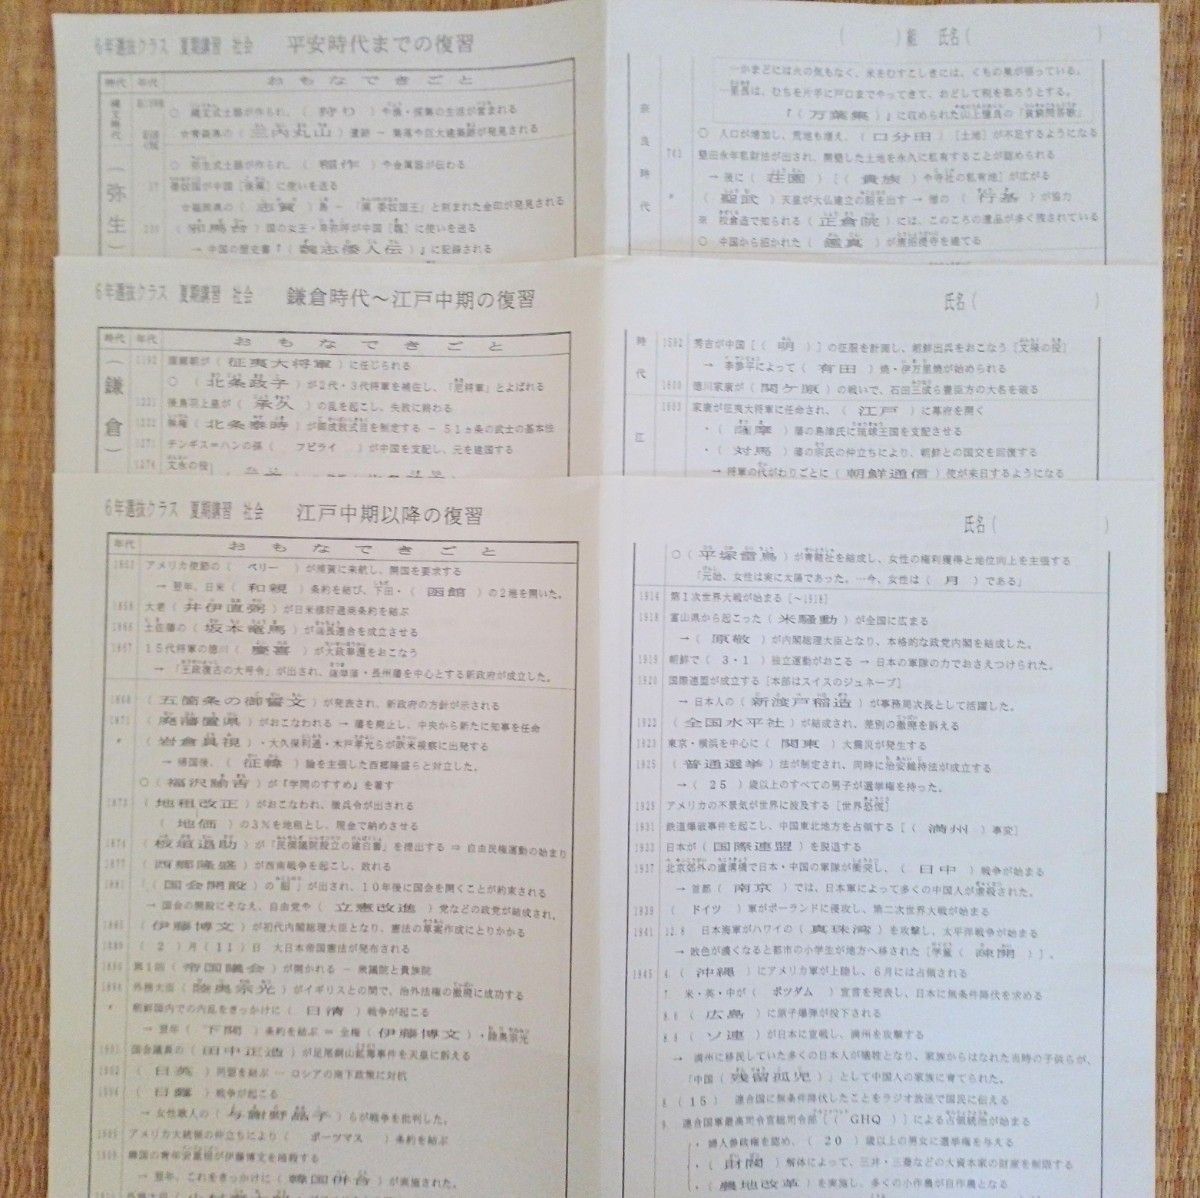 6年選抜クラス 夏期講習 社会 平安時代までの復習
時代 年代 おもなできごと
縄文時代
○ 縄文式土器が作られ、( 狩り )や漁・採集の生活が営まれる
☆青森県の( 三内丸山 )遺跡 - 集落や巨大建築跡が発見される
(弥生)
○ 弥生式土器が作られ、( 稲作 )や金属器が伝わる
57 倭奴国が中国[後漢]に使いを送る
☆福岡県の( 志賀 )島 - 「漢委奴国王」と刻まれた金印が発見される
239 ( 邪馬台 )国の女王・卑弥呼が中国[魏]に使いを送る
→ 中国の歴史書『( 魏志倭人伝 )』に記録される
( )組 氏名( )
奈良時代
―かまどには火の気もなく、米をむすこしきには、くもの巣が張っている。
―里長は、むちを片手に戸口までやってきて、おどして税を取ろうとする。
『( 万葉集 )』に収められた山上憶良の「貧窮問答歌」
○ 人口が増加し、荒地も増え、( 口分田 )[土地]が不足するようになる
743 墾田永年私財法が出され、開墾した土地を永久に私有することが認められる
→ 後に( 荘園 )[( 貴族 )や寺社の私有地]が広がる
〃 ( 聖武 )天皇が大仏建立の詔を出す → 僧の( 行基 )が協力
※ 校倉造で知られる( 正倉院 )には、このころの遺品が多く残されている
○ 中国から招かれた( 鑑真 )が唐招提寺を建てる
6年選抜クラス 夏期講習 社会 鎌倉時代～江戸中期の復習
時代 年代 おもなできごと
(鎌倉)
1192 源頼朝が( 征夷大将軍 )に任じられる
○ ( 北条政子 )が2代・3代将軍を補佐し、「尼将軍」とよばれる
1221 後鳥羽上皇が( 承久 )の乱を起こし、失敗に終わる
1232 執権( 北条泰時 )が御成敗式目を制定する - 51ヵ条の武士の基本法
1271 チンギス=ハンの孫( フビライ )が中国を支配し、元を建国する
1274 文永の役
氏名( )
時代
1592 秀吉が中国[( 明 )]の征服を計画し、朝鮮出兵をおこなう[文禄の役]
→ 李参平によって( 有田 )焼・伊万里焼が始められる
1600 徳川家康が( 関ケ原 )の戦いで、石田三成ら豊臣方の大名を破る
江
1603 家康が征夷大将軍に任命され、( 江戸 )に幕府を開く
・( 薩摩 )藩の島津氏に琉球王国を支配させる
・( 対馬 )藩の宗氏の仲立ちにより、朝鮮との国交を回復する
→ 将軍の代がわりごとに( 朝鮮通信 )使が来日するようになる
6年選抜クラス 夏期講習 社会 江戸中期以降の復習
年代 おもなできごと
1853 アメリカ使節の( ペリー )が浦賀に来航し、開国を要求する
→ 翌年、日米( 和親 )条約を結び、下田・( 函館 )の2港を開いた。
1858 大老( 井伊直弼 )が日米修好通商条約を結ぶ
1866 土佐藩の( 坂本竜馬 )が薩長連合を成立させる
1867 15代将軍の徳川( 慶喜 )が大政奉還をおこなう
→ 「王政復古の大号令」が出され、薩摩藩・長州藩を中心とする新政府が成立した。
1868 ( 五箇条の御誓文 )が発表され、新政府の方針が示される
1871 ( 廃藩置県 )がおこなわれる → 藩を廃止し、中央から新たに知事を任命
〃 ( 岩倉具視 )・大久保利通・木戸孝允らが欧米視察に出発する
→ 帰国後、( 征韓 )論を主張した西郷隆盛らと対立した。
○( 福沢諭吉 )が『学問のすすめ』を著す
1873 ( 地租改正 )がおこなわれ、徴兵令が出される
( 地価 )の3%を地租とし、現金で納めさせる
1874 ( 板垣退助 )が「民撰議院設立の建白書」を提出する ⇒ 自由民権運動の始まり
1877 ( 西郷隆盛 )が西南戦争を起こし、敗れる
1881 「( 国会開設 )の詔」が出され、10年後に国会を開くことが約束される
→ 国会の開設にそなえ、自由党や( 立憲改進 )党などの政党が結成され、
1885 ( 伊藤博文 )が初代内閣総理大臣となり、憲法の草案作成にとりかかる
1889 ( 2 )月( 11 )日 大日本帝国憲法が発布される
1890 第1回( 帝国議会 )が開かれる - 衆議院と貴族院
1894 外務大臣( 陸奥宗光 )がイギリスとの間で、治外法権の撤廃に成功する
〃 朝鮮国内での内乱をきっかけに( 日清 )戦争が起こる
→ 翌年( 下関 )条約を結ぶ = 全権( 伊藤博文 )・陸奥宗光
1901 国会議員の( 田中正造 )が足尾銅山鉱毒事件を天皇に訴える
1902 ( 日英 )同盟を結ぶ … ロシアの南下政策に対抗
1904 ( 日露 )戦争が起こる
→ 女性歌人の( 与謝野晶子 )らが戦争を批判した。
1905 アメリカ大統領の仲立ちにより( ポーツマス )条約を結ぶ
1909 韓国の青年安重根が伊藤博文を暗殺する
→ 翌年、これをきっかけに( 韓国併合 )が実施された。
氏名( )
○( 平塚雷鳥 )が青鞜社を結成し、女性の権利獲得と地位向上を主張する
「元始、女性は実に太陽であった。―今、女性は( 月 )である」
1914 第1次世界大戦が始まる[～1918]
1918 富山県から起こった( 米騒動 )が全国に広まる
→ ( 原敬 )が内閣総理大臣となり、本格的な政党内閣を結成した。
1919 朝鮮で( 3・1 )独立運動がおこる → 日本の軍隊の力でおさえつけられた。
1920 国際連盟が成立する[本部はスイスのジュネーブ]
→ 日本人の( 新渡戸稲造 )が事務局次長として活躍した。
1922 ( 全国水平社 )が結成され、差別の撤廃を訴える
1923 東京・横浜を中心に( 関東 )大震災が発生する
1925 ( 普通選挙 )法が制定され、同時に治安維持法が成立する
→ ( 25 )歳以上のすべての男子が選挙権を持った。
1929 アメリカの不景気が世界に波及する[世界恐慌]
1931 鉄道爆破事件を起こし、中国東北地方を占領する[( 満州 )事変]
1933 日本が( 国際連盟 )を脱退する
1937 北京郊外の盧溝橋で日本・中国の軍隊が衝突し、( 日中 )戦争が始まる
→ 首都( 南京 )では、日本軍によって多くの中国人が虐殺された。
1939 ( ドイツ )軍がポーランドに侵攻し、第二次世界大戦が始まる
1941 12.8 日本海軍がハワイの( 真珠湾 )を攻撃し、太平洋戦争が始まる
→ 敗色が濃くなると都市の小学生が地方へ移された[学童( 疎開 )]。
1945 4. ( 沖縄 )にアメリカ軍が上陸し、6月には占領される
7 米・英・中が( ポツダム )宣言を発表し、日本に無条件降伏を求める
8.6 ( 広島 )に原子爆弾が投下される
8.8 ( ソ連 )が日本に宣戦し、満州を攻撃する
→ 満州に移民していた多くの日本人が犠牲となり、家族からはなれた当時の子供らが、
「中国( 残留孤児 )」として中国人の家族に育てられた。
8.( 15 ) 連合国に無条件降伏したことをラジオ放送で国民に伝える
9. 連合国軍最高司令官総司令部[( GHQ )]による占領統治が始まる
・婦人参政権を認め、( 20 )歳以上の男女に選挙権を与える
・( 財閥 )解体によって、三井・三菱などの大資本家の財産を制限する
・( 農地改革 )を実施し、多くの小作農が自作農となる